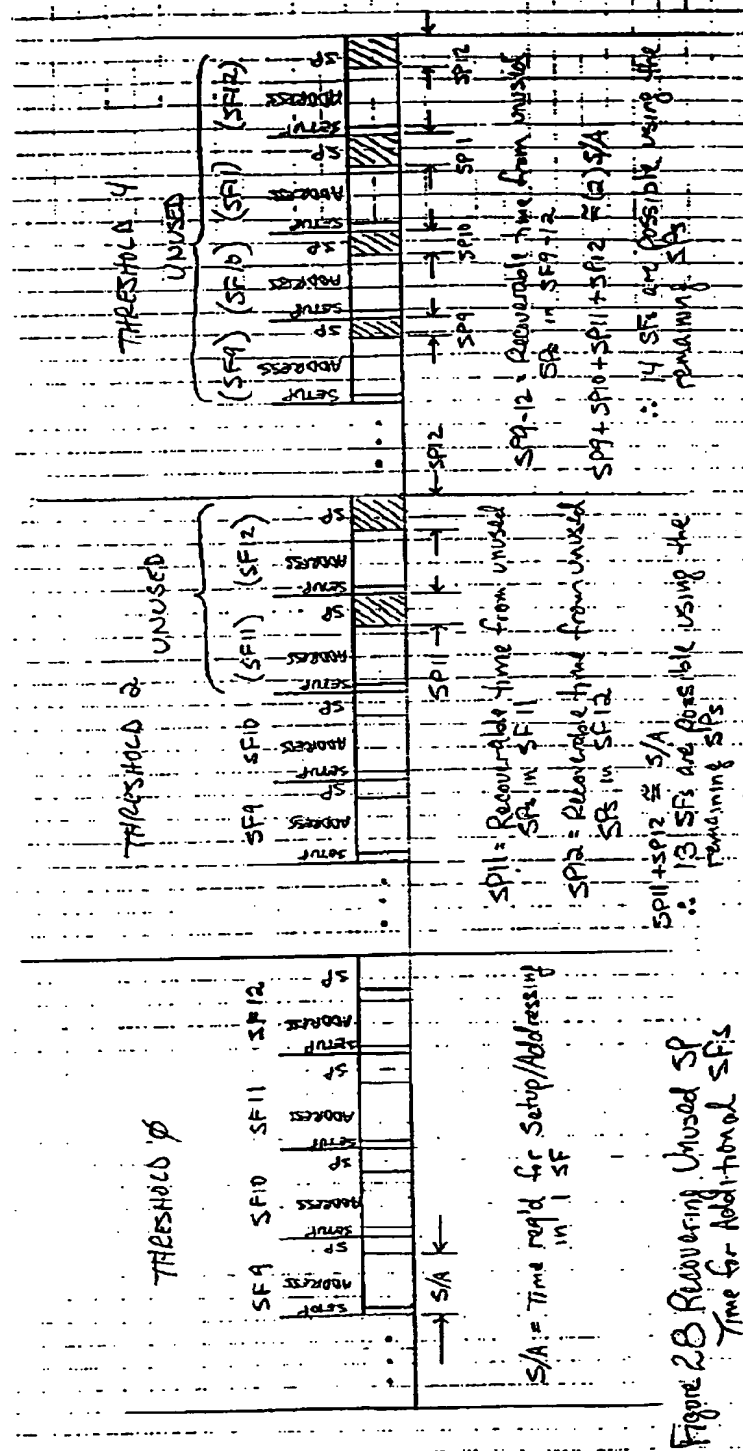 THRESHOLD Ø
SF9 SF10 SF11 SF12
SETUP ADDRESS SP SETUP ADDRESS SP SETUP ADDRESS SP SETUP ADDRESS SP
• • •
S/A
S/A = Time req'd for Setup/Addressing
in 1 SF
THRESHOLD 2
UNUSED
SF9 SF10 (SF11) (SF12)
SETUP ADDRESS SP SETUP ADDRESS SP SETUP ADDRESS SP SETUP ADDRESS SP
• • •
SP11 SP12
SP11 = Recoverable time from unused
SPs in SF11
SP12 = Recoverable time from unused
SPs in SF12
SP11+SP12 ≅ S/A
∴ 13 SFs are possible using the
remaining SPs
THRESHOLD 4
UNUSED
(SF9) (SF10) (SF11) (SF12)
SETUP ADDRESS SP SETUP ADDRESS SP SETUP ADDRESS SP SETUP ADDRESS SP
• • •
SP9 SP10 SP11 SP12
SP9-12 = Recoverable time from unused
SPs in SF9-12
SP9+SP10+SP11+SP12 ≅ (2) S/A
∴ 14 SFs are possible using the
remaining SPs
Figure 2B Recovering Unused SP
Time for Additional SFs